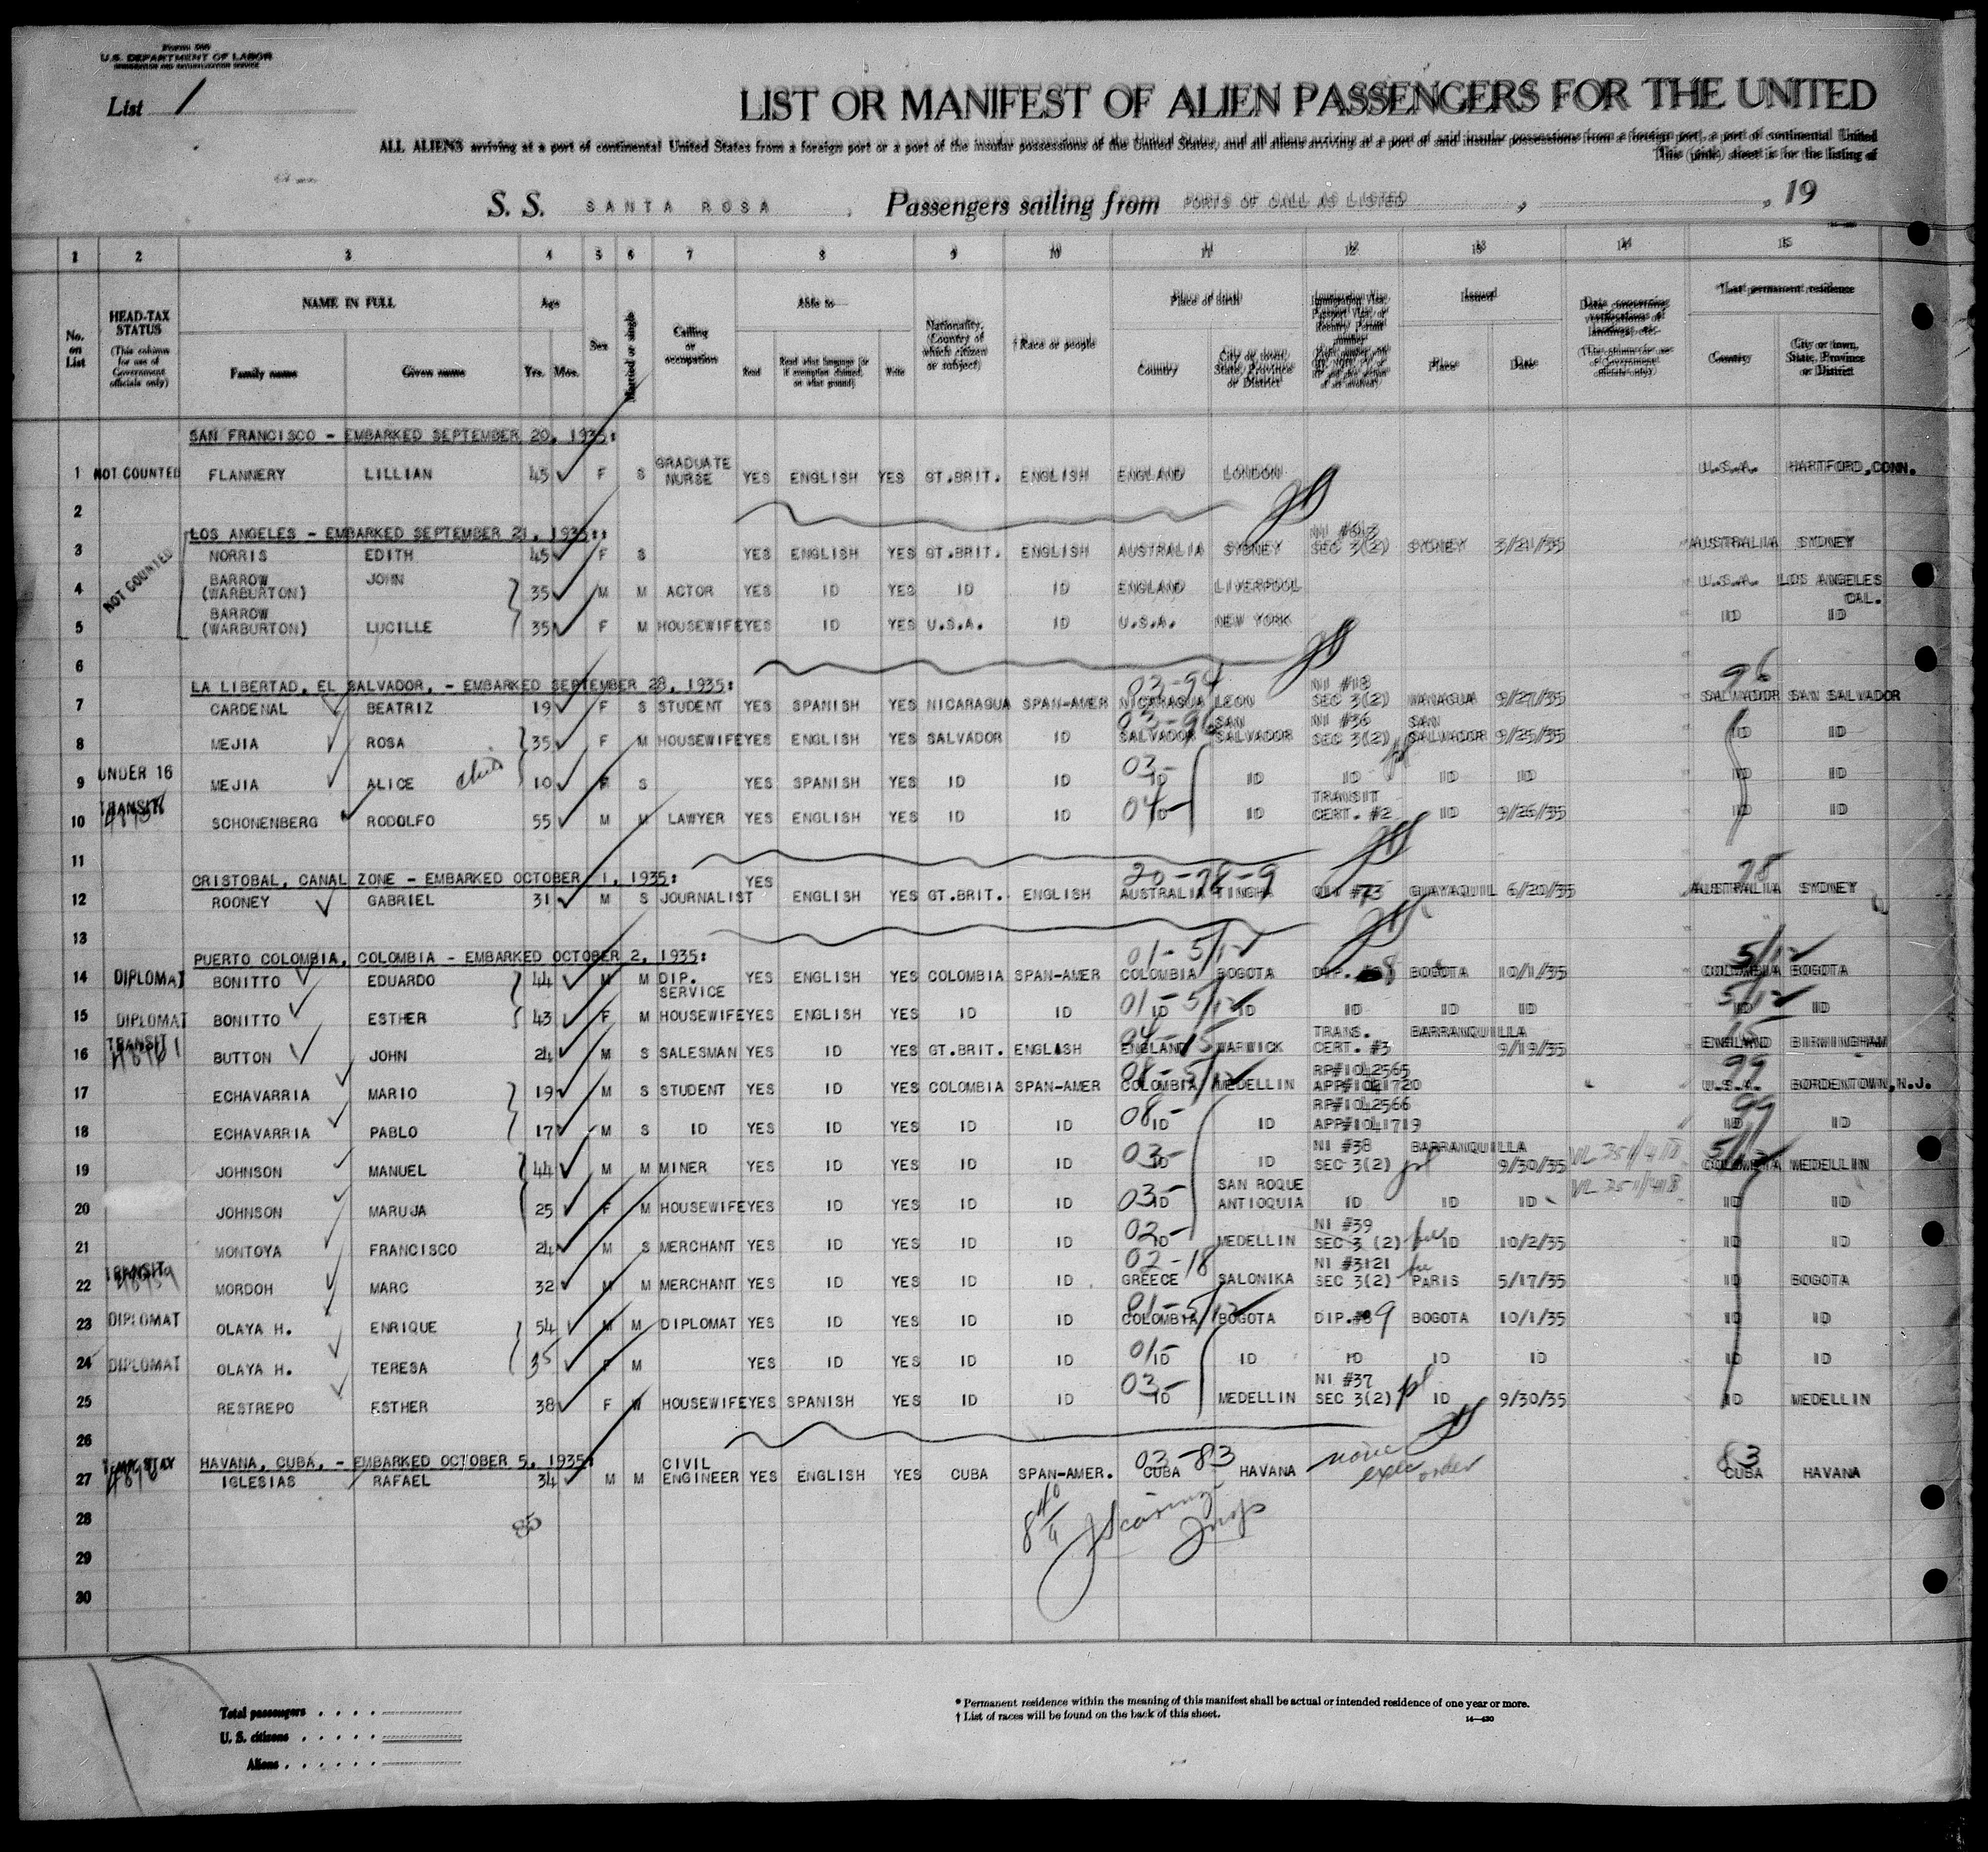 Form 500
U.S. DEPARTMENT OF LABOR
IMMIGRATION AND NATURALIZATION SERVICE
List 1
LIST OR MANIFEST OF ALIEN PASSENGERS FOR THE UNITED
ALL ALIENS arriving at a port of continental United States from a foreign port or a port of the insular possessions of the United States, and all aliens arriving at a port of said insular possessions from a foreign port, a port of continental United
This (pink) sheet is for the listing of
S. S. SANTA ROSA , Passengers sailing from PORTS OF CALL AS LISTED , , 19
1 2 3 4 5 6 7 8 9 10 11 12 13 14 15
No. on List
HEAD-TAX STATUS (This column for use of Government officials only)
NAME IN FULL Family name Given name
Age Yrs. Mos.
Sex
Married or single
Calling or occupation
Able to— Read Read what language (or if exemption claimed, on what ground) Write
Nationality. (Country of which citizen or subject)
† Race or people
Place of birth Country City or town, State, Province or District
Issued Place Date
Data concerning verifications of landings, etc. (This column for use of Government officials only)
*Last permanent residence Country City or town, State, Province or District
SAN FRANCISCO - EMBARKED SEPTEMBER 20, 1935:
1 NOT COUNTED FLANNERY LILLIAN 43 F S GRADUATE NURSE YES ENGLISH YES GT.BRIT. ENGLISH ENGLAND LONDON U.S.A. HARTFORD,CONN.
2
LOS ANGELES - EMBARKED SEPTEMBER 21, 1935::
NOT COUNTED
3 NORRIS EDITH 45 F S YES ENGLISH YES GT.BRIT. ENGLISH AUSTRALIA SYDNEY SEC 3(2) SYDNEY 3/21/35 AUSTRALIA SYDNEY
4 BARROW (WARBURTON) JOHN 35 M M ACTOR YES ID YES ID ID ENGLAND LIVERPOOL U.S.A. LOS ANGELES CAL.
5 BARROW (WARBURTON) LUCILLE 35 F M HOUSEWIFE YES ID YES U.S.A. ID U.S.A. NEW YORK ID ID
6
LA LIBERTAD, EL SALVADOR, - EMBARKED SEPTEMBER 28, 1935: 03-94 96
7 CARDENAL BEATRIZ 19 F S STUDENT YES SPANISH YES NICARAGUA SPAN-AMER NICARAGUA LEON NI #18 SEC 3(2) MANAGUA 9/27/35 SALVADOR SAN SALVADOR
8 MEJIA ROSA 35 F M HOUSEWIFE YES ENGLISH YES SALVADOR ID 03-96 SALVADOR SAN SALVADOR NI #36 SEC 3(2) SAN SALVADOR 9/25/35 ID ID
9 UNDER 16 MEJIA ALICE child 10 F S YES SPANISH YES ID ID 03- ID ID ID ID ID ID ID
10 TRANSIT SCHONENBERG RODOLFO 55 M M LAWYER YES ENGLISH YES ID ID 04- ID ID TRANSIT CERT. #2 ID 9/26/35 ID ID
11
CRISTOBAL, CANAL ZONE - EMBARKED OCTOBER 1, 1935: 20-78-9 78
12 ROONEY GABRIEL 31 M S JOURNALIST YES ENGLISH YES GT.BRIT. ENGLISH AUSTRALIA TINGHA GUAYAQUIL 6/20/35 AUSTRALIA SYDNEY
13
PUERTO COLOMBIA, COLOMBIA - EMBARKED OCTOBER 2, 1935: 01-5/12 5/12
14 DIPLOMAT BONITTO EDUARDO 44 M M DIP. SERVICE YES ENGLISH YES COLOMBIA SPAN-AMER COLOMBIA BOGOTA DIP. 8 BOGOTA 10/1/35 COLOMBIA BOGOTA
15 DIPLOMAT BONITTO ESTHER 43 F M HOUSEWIFE YES ENGLISH YES ID ID 01-5/12 ID ID ID ID ID 5/12 ID ID
16 TRANSIT BUTTON JOHN 24 M S SALESMAN YES ID YES GT.BRIT. ENGLISH 04-15 ENGLAND WARWICK TRANS. CERT. #3 BARRANQUILLA 9/19/35 15 ENGLAND BIRMINGHAM
17 ECHAVARRIA MARIO 19 M S STUDENT YES ID YES COLOMBIA SPAN-AMER 08-5/12 COLOMBIA MEDELLIN RP#1042565 APP#1041720 99 U.S.A. BORDENTOWN,N.J.
18 ECHAVARRIA PABLO 17 M S ID YES ID YES ID ID 08- ID ID RP#1042566 APP#1041719 99 ID ID
19 JOHNSON MANUEL 44 M M MINER YES ID YES ID ID 03- ID ID NI #38 SEC 3(2) BARRANQUILLA 9/30/35 5/12 COLOMBIA MEDELLIN
20 JOHNSON MARUJA 25 F M HOUSEWIFE YES ID YES ID ID 03- ID SAN ROQUE ANTIOQUIA ID ID ID ID ID
21 MONTOYA FRANCISCO 24 M S MERCHANT YES ID YES ID ID 02- ID MEDELLIN NI #39 SEC 3 (2) ID 10/2/35 ID ID
22 TRANSIT MORDOH MARC 32 M M MERCHANT YES ID YES ID ID 02-18 GREECE SALONIKA NI #3121 SEC 3(2) PARIS 5/17/35 ID BOGOTA
23 DIPLOMAT OLAYA H. ENRIQUE 54 M M DIPLOMAT YES ID YES ID ID 01-5/12 COLOMBIA BOGOTA DIP.# 9 BOGOTA 10/1/35 ID ID
24 DIPLOMAT OLAYA H. TERESA 35 F M YES ID YES ID ID 01- ID ID ID ID ID ID ID
25 RESTREPO ESTHER 38 F W HOUSEWIFE YES SPANISH YES ID ID 03- ID MEDELLIN NI #37 SEC 3(2) ID 9/30/35 ID MEDELLIN
26
HAVANA, CUBA, - EMBARKED OCTOBER 5, 1935:
27 IGLESIAS RAFAEL 34 M M CIVIL ENGINEER YES ENGLISH YES CUBA SPAN-AMER. 03-83 CUBA HAVANA none exec order 83 CUBA HAVANA
28
29
30
Total passengers . . . .
U. S. citizens . . . . .
Aliens . . . . . .
* Permanent residence within the meaning of this manifest shall be actual or intended residence of one year or more.
† List of races will be found on the back of this sheet.
14—430